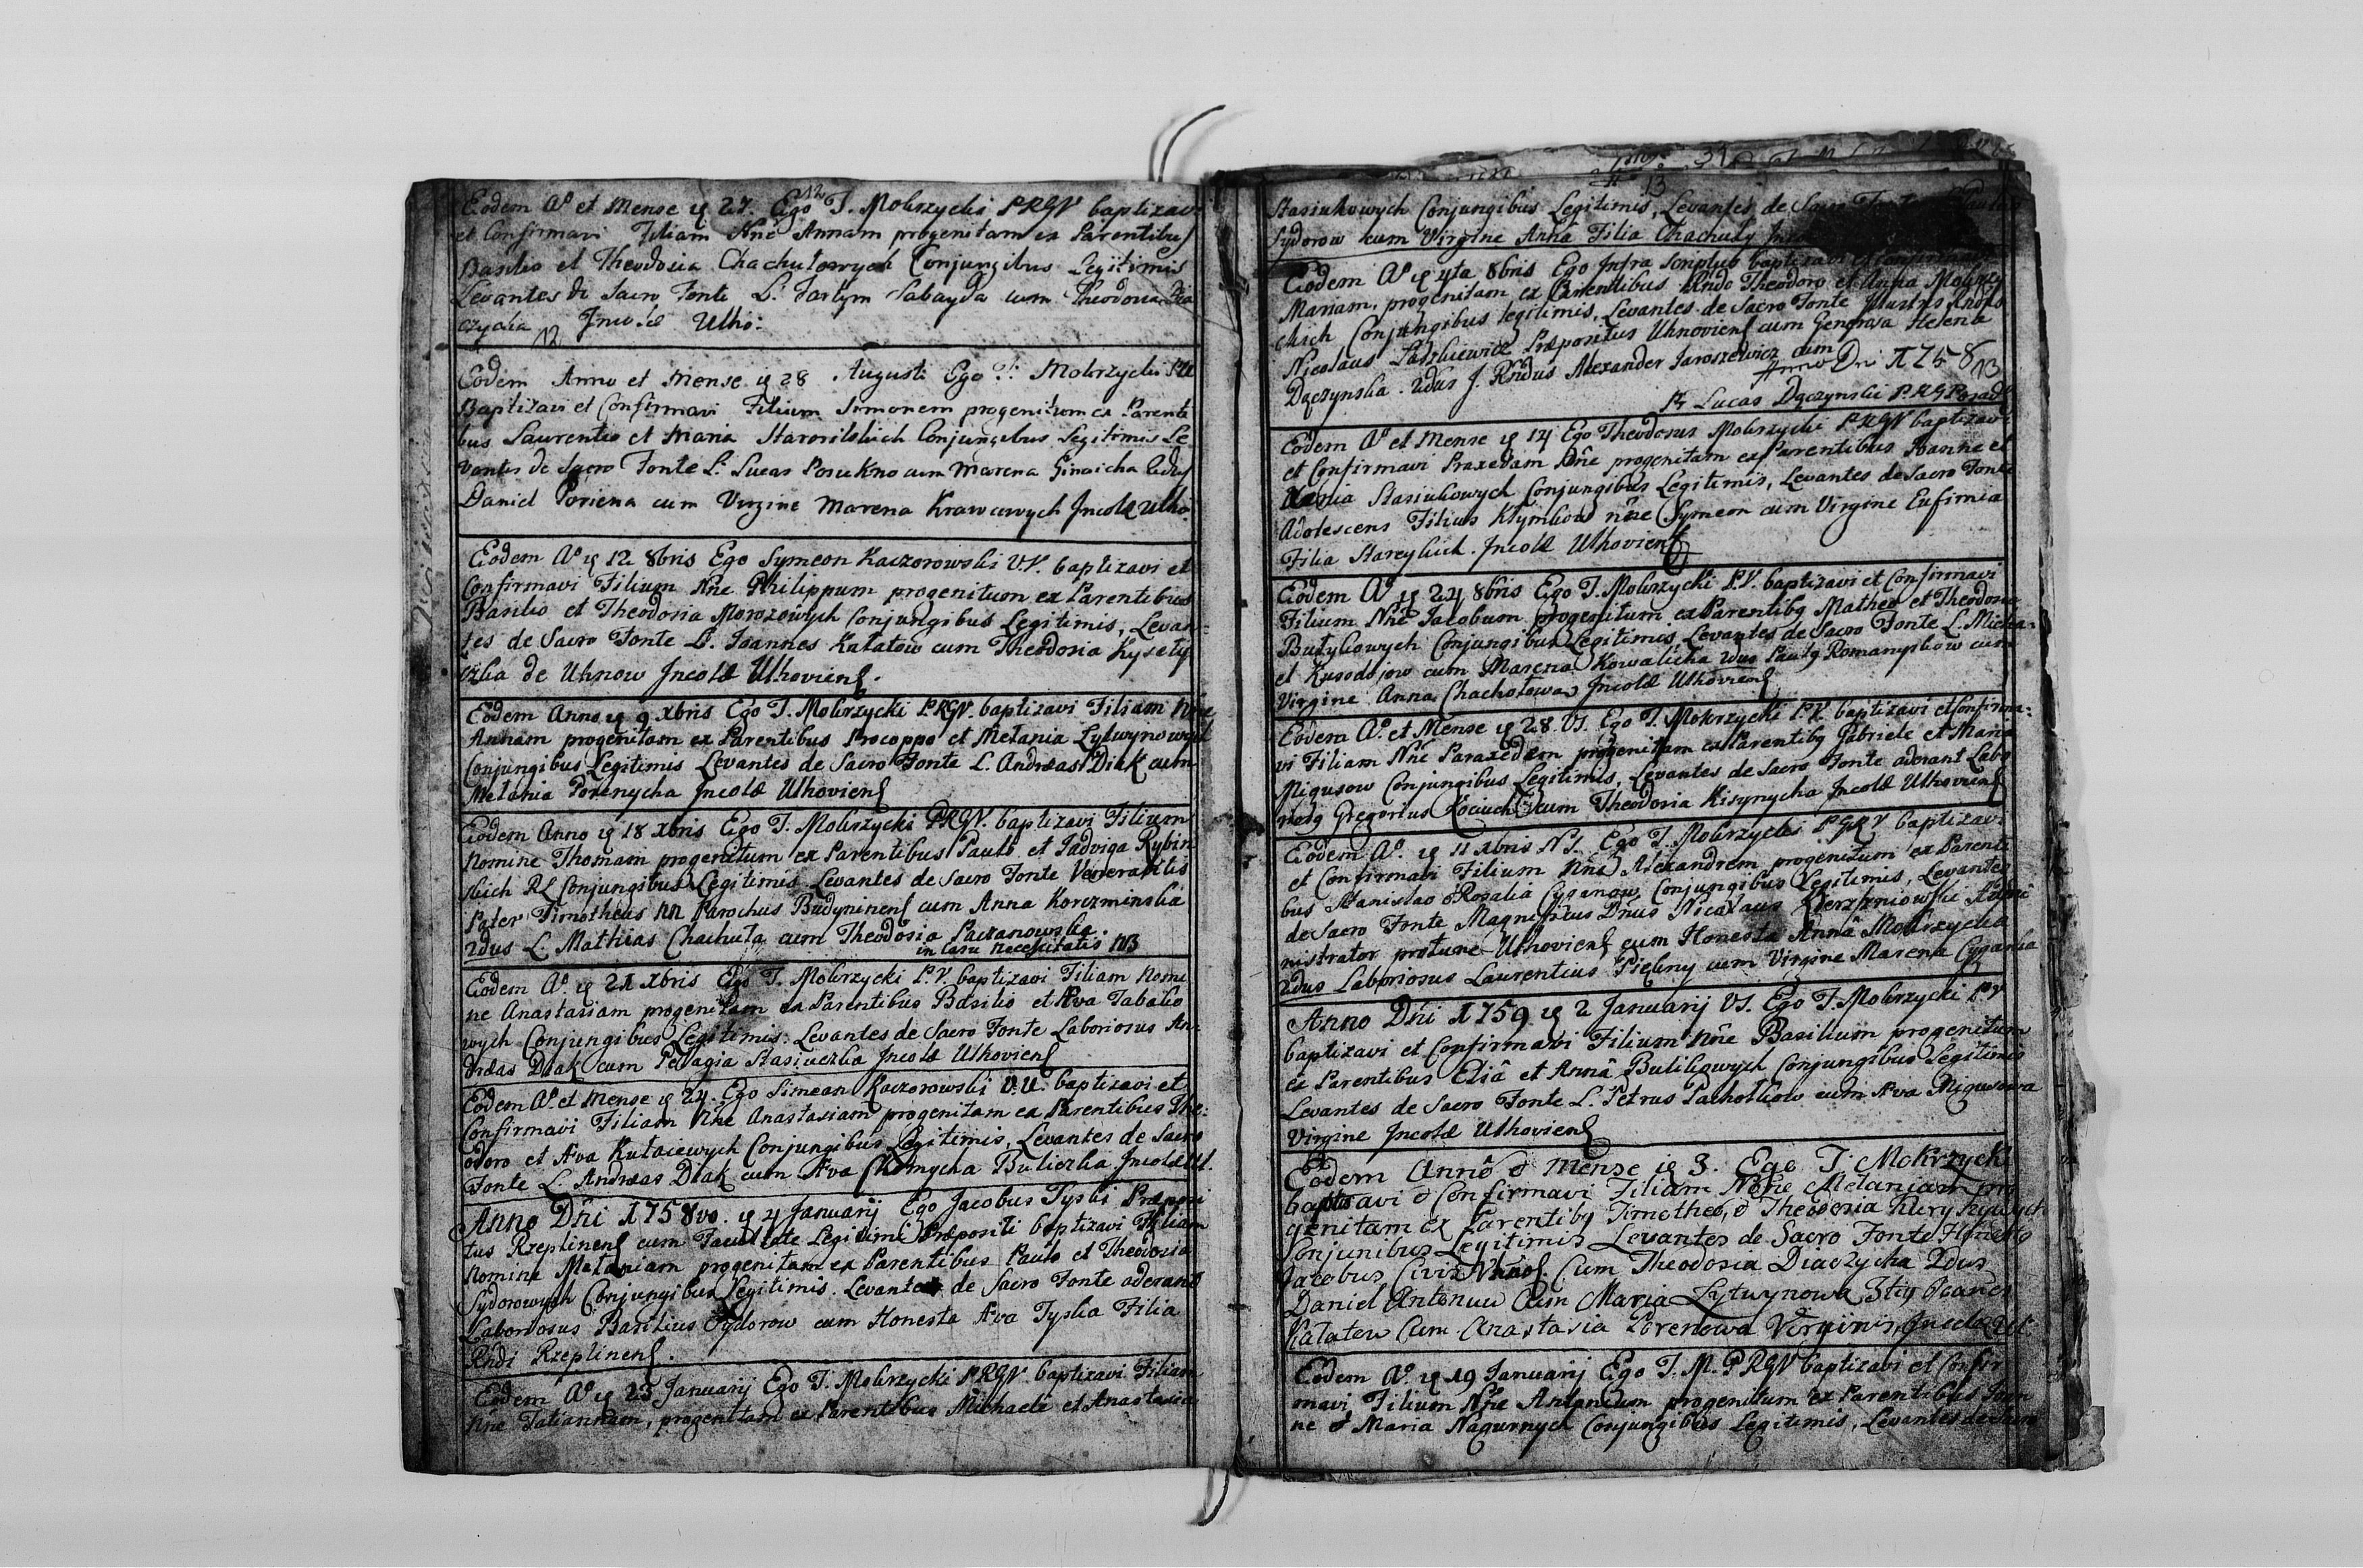 12
Eodem Aº et Mense ię 27. Ego T. Mokrzycki PRGV baptizavi
et Confirmavi Filiam Nñe Annam progenitam ex Parentibus
Basilio et Theodosia Chachulowych Conjungibus Legitimis
Levantes de Sacro Fonte L: Fartym Sabayda cum Theodosia Dia
czycha Incolæ Ulho:
12
Eodem Anno et Mense ię 28 Augusti Ego T: Mokrzycki
Baptizavi et Confirmavi Filium Simonem progenitum ex Parenti
bus Laurentio et Maria Conjungibus Legitimis Le
vantes de Sacro Fonte L: Lucas cum Marena 2dus
Daniel Poriena cum Virgine Marena Krawcowych Incolæ Ulho:
Eodem Aº ię 12 8bris Ego Symeon Kaczorowski V.V. baptizavi et
Confirmavi Filium Nñe Philippum progenitum ex Parentibus
Basilio et Theodosia Morozowych Conjungibus Legitimis, Levan-
tes de Sacro Fonte L. Joannes Kałatow cum Theodosia
de Uhnow Incolæ Ulhoviens.
Eodem Anno ię 9 Xbris Ego T. Mokrzycki PRGV. baptizavi Filiam Nñe
Annam progenitam ex Parentibus Procoppo et Melania Lytwynowych
Conjungibus Legitimis Levantes de Sacro Fonte L. Andreas Diak cum
Melania Porenycha Incolæ Ulhoviens
Eodem Anno ię 18 Xbris Ego T. Mokrzycki PRGV. baptizavi Filium
Nomine Thomam progenitum ex Parentibus Paulo et Jadviga Rybin
skich Conjungibus Legitimis Levantes de Sacro Fonte Venerabilis
Pater Timotheus NN Parochus Budyninens cum Anna Korczminska
2dus L. Mathias Chachuła cum Theodosia Paczanowska.
in Casu necessitatis NB
Eodem Aº ię 21 Xbris Ego T. Mokrzycki P.V. baptizavi Filiam Nomi
ne Anastasiam progenitam ex Parentibus Basilio et Ava Tabało
wych Conjungibus Legitimis. Levantes de Sacro Fonte Laboriosus An-
dreas Diak cum Pelagia Stasiuczka Incolæ Ulhoviens
Eodem Aº et Mense ię 24. Ego Simeon Kaczorowski V.V. baptizavi et
Confirmavi Filiam Nñe Anastasiam progenitam ex Parentibus The:
odoro et Ava Conjungibus Legitimis, Levantes de Sacro
Fonte L. Andreas Diak cum Ava Buliczka Incolæ Ul.
Anno Dñi 1758vo. ię 4 Januarij Ego Jacobus Tyski Præposi
tus Rzeplinens cum Facultate Legitimi Præpositi baptizavi Filiam
Nomine Melaniam progenitam ex Parentibus Paulo et Theodosia
Sydorowych Conjungibus Legitimis. Levantes de Sacro Fonte aderant
Laboriosus Basilius Sydorow cum Honesta Ava Tyska Filia
Rñdi Rzeplinens.
Eodem Aº ię 23 Januarij Ego T. Mokrzycki PRGV baptizavi Filiam
Nñe Tatiannam, progenitam ex Parentibus Michaele et Anastasia
13
Stasiukowych Conjungibus Legitimis, Levantes de Sacro
Sydorow cum Virgine Anna Filia Chachuły
Eodem Aº ię 4ta 8bris Ego Infra Scriptus baptizavi et Confirmavi
Mariam, progenitam ex Parentibus Rndo Theodoro et Anna Mokrzy
ckich Conjungibus legitimis, Levantes de Sacro Fonte
Nicolaus Præpositus Uhnoviens cum Generosa Helena
Dączynska. 2dus J. Rñdus Alexander Jaroszewicz cum
Anno Dni 1758
13
Lucas Dączynski
Eodem Aº et Mense ię 14 Ego Theodorus Mokrzycki PRGV baptizavi
et Confirmavi Praxedam Nñe progenitam ex Parentibus Joanne et
Maria Stasiukowych Conjungibus Legitimis, Levantes de Sacro Fonte
Adolescens Filius Klymkow nñe Symeon cum Virgine Eufimia
Filia Incolæ Ulhoviens
Eodem Aº ię 24 8bris Ego T. Mokrzycki P.V. baptizavi et Confirmavi
Filium Nñe Jacobum progenitum ex Parentibg Matheo et Theodosia
Butylkowych Conjungibus Legitimis Levantes de Sacro Fonte L. Micha-
el cum Marena Kowalicha 2dus Paulg Romanyskow cum
Virgine Anna Chachołowa Incolæ Ulhoviens
Eodem Aº et Mense ię 28 VS. Ego T. Mokrzycki P.V. baptizavi et Confirma:
vi Filiam Nñe Paraxedem progenitam ex Parentibg Gabriele et Maria
Nigusow Conjungibus Legitimis, Levantes de Sacro Fonte aderant Labo
riosg Gregorius cum Theodosia Kisynycha Incolæ Ulhoviens
Eodem Aº ię 11 Xbris NS. Ego T. Mokrzycki PGRV baptizavi
et Confirmavi Filium Nñe Alexandrem progenitum ex Parenti
bus Stanislao & Rosalia Cyganow Conjungibus Legitimis, Levantes
de Sacro Fonte Magnificus Dñus Nicolaus Admi
nistrator protunc Ulhoviens cum Honesta Anna Mokrzycka
2dus Laboriosus Laurentius cum Virgine Marena Cyganka
Anno Dñi 1759 ię 2 Januarij VS. Ego T. Mokrzycki P.V
baptizavi et Confirmavi Filium Nñe Basilium progenitum
ex Parentibus Eliâ et Annâ Bulikowych Conjungibus Legitimis
Levantes de Sacro Fonte L. Petrus Pachołkow cum Ava Nigusowa
Virgine Incolæ Ulhoviens
Eodem Annô & Mense ię 3. Ego T. Mokrzycki
baptizavi & Confirmavi Filiam Nñe Melaniam pro
genitam ex Parentibg Timotheo, & Theodosia
Conjunibus Legitimis Levantes de Sacro Fonte
Jacobus Civis Cum Theodosia Diaczycha 2dus
Daniel Cum Maria Lytwynowa 3tig Joanes
Kałatow Cum Anastasia Porenowa Virginis, Incolæ Ul.
Eodem Aº ię 19 Januarij Ego T. M. PRGV baptizavi et Confir
mavi Filium Nñe Antonium progenitum ex Parentibus Joan
ne & Maria Nagurnych Conjungibus Legitimis, Levantes de Sacro